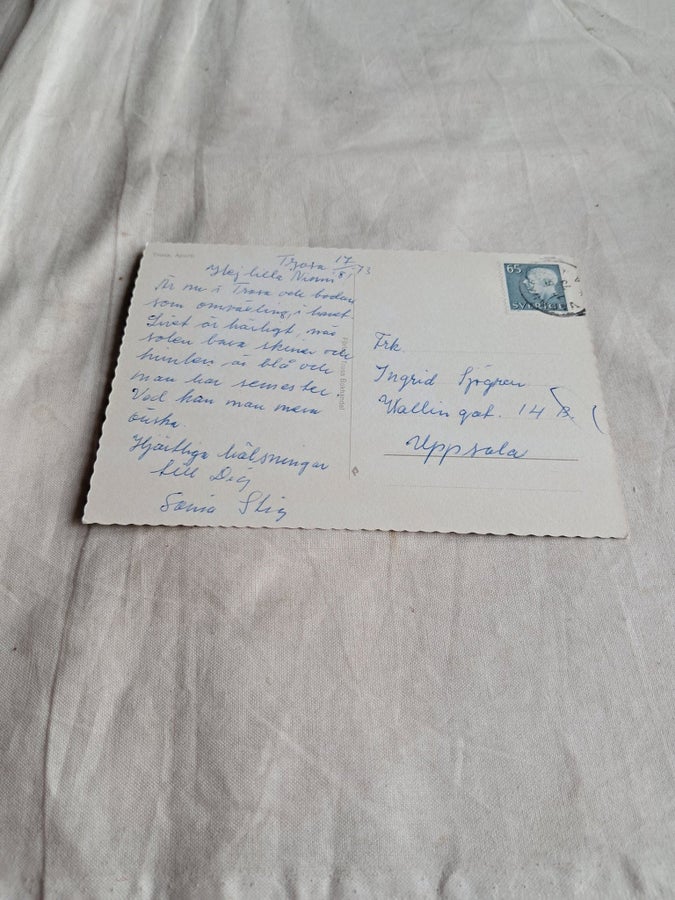 Trosa, 
Trosa 17/8 73
Hej lilla
Är nu i Trosa och badar
som omväxling, i havet
Livet är härligt, när
solen bara skiner och
himlen är blå och
man har semester.
Vad kan man mera
önska.
Hjärtliga hälsningar
till Dig
Sonia Stig
65
SVERIGE
Frk.
Ingrid Sjögren
Wallingat. 14 B.
Uppsala
Bokhandel